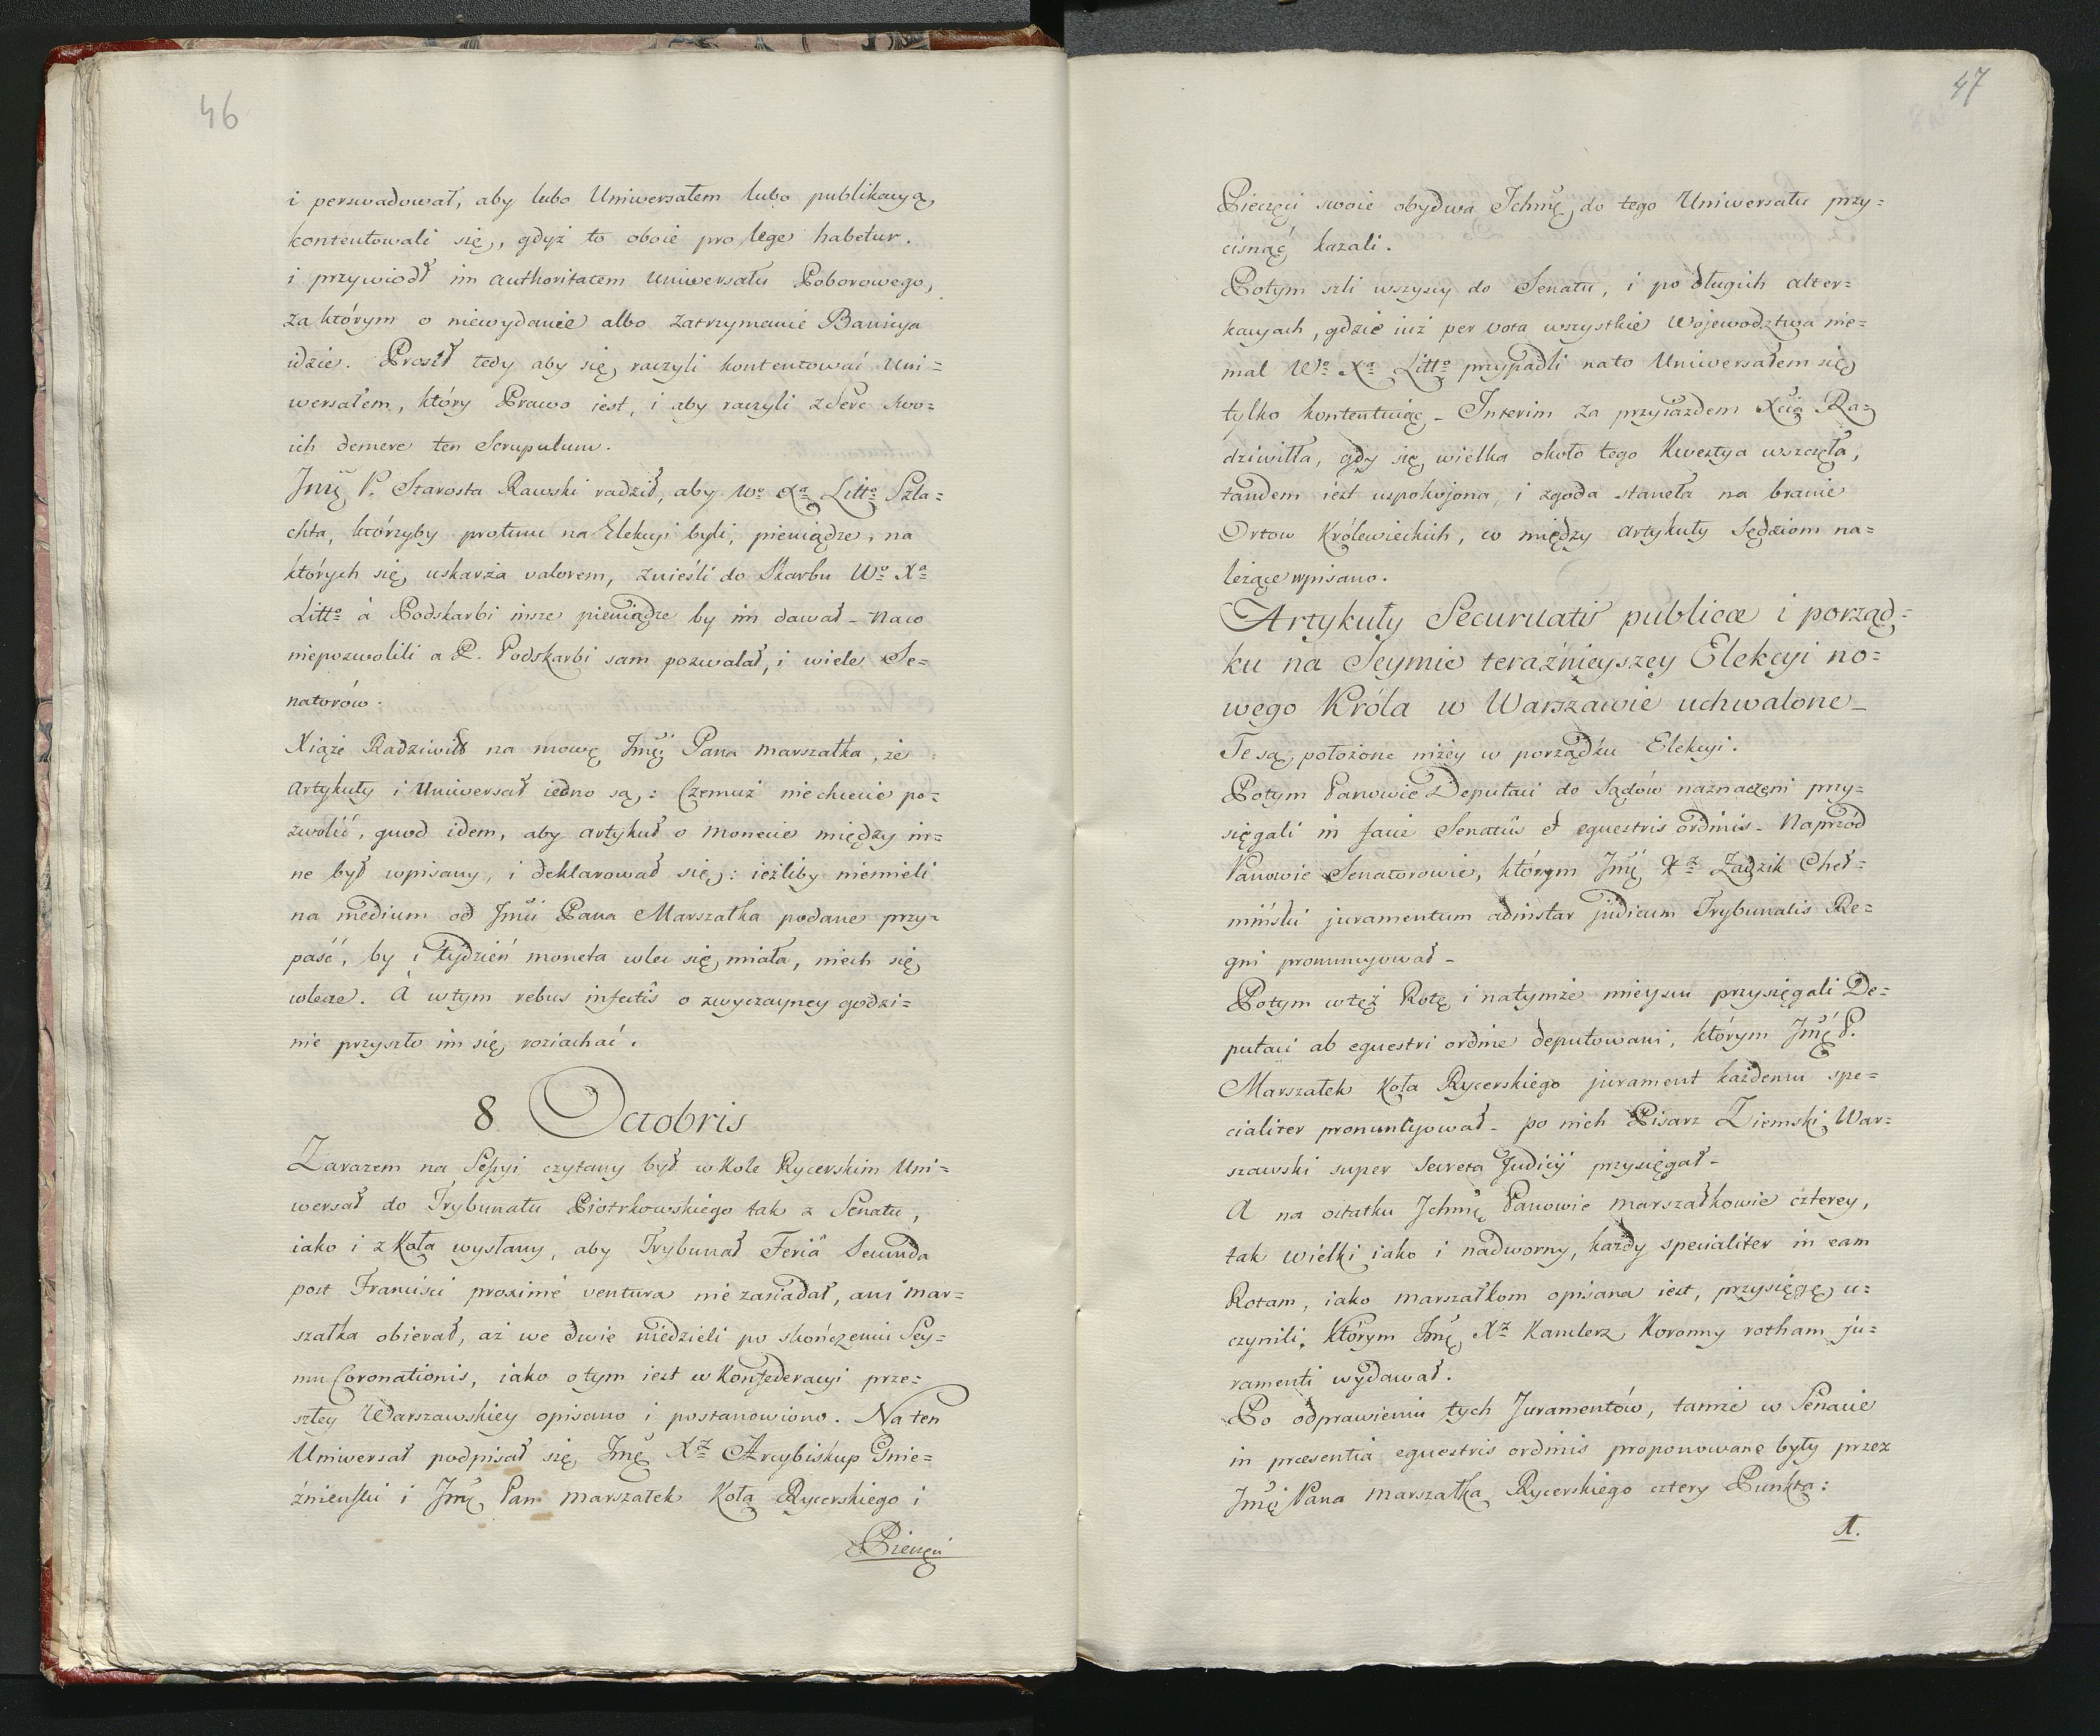 46
i perswadował, aby lubo Uniwersałem lubo publikacyą,
kontentowali się, gdyż to oboie pro lege habetur.
i przywiodł im authoritatem Uniwersału Poborowego,
za którym o niewydanie albo zatrzymanie Bannicya
idzie. Prosił tedy aby się raczyli kontentować Uni=
wersałem, który Prawo iest, i aby raczyli z Serc swo=
ich demere ten Scrupulum.
Jmć P. Starosta Rawski radził, aby Wo Xa Litto Szla=
chta, którzyby protunc na Elekcyi byli, pieniądze, na
których się uskarża valorem, znieśli do Skarbu Wo Xa
Litto á Podskarbi insze pieniądze by im dawał _ Naco
niepozwolili a P. Podskarbi sam pozwalał, i wiele Se=
natorów.
Xiąże Radziwiłł na mowę Jmći Pana marszałka, że
artykuły i Uniwersał iedno są: Czemuż niechcecie po=
zwolić, quod idem, aby artykuł o monecie między in=
ne był wpisany, i deklarował się: ieżliby niemieli
na medium od Jmći Pana Marszałka podane przy=
paść, by i tydzień moneta wlec się miała, niech się
wlecze. A wtym rebus infectis o zwyczayney godzi=
nie przyszło im się roziachać.
8 Octobris
Zarazem na Sessyi czytany był w Kole Rycerskim Uni=
wersał do Trybunału Piotrkowskiego tak z Senatu,
iako i z Koła wysłany, aby Trybunał Feriâ Secunda
post Francisci proximé ventura nie zasiadał, ani mar=
szałka obierał, aż we dwie niedzieli po skończeniu Sey=
mu Coronationis, iako o tym iest w Konfederacyi prze=
szłey Warszawskiey opisano i postanowiono. Na ten
Uniwersał podpisał się Jmć Xz Arcybiskup Gnie=
źnieński i Jmć Pan marszałek Koła Rycerskiego i
Pieczęci
47
Pieczęci swoie obydwa Ichmć do tego Uniwersału przy=
cisnąć kazali.
Potym szli wszyscy do Senatu, i po długich alter=
kacyach, gdzie iuż per vota wszystkie Wojewodztwa nie=
mal Wo Xa Litto przypadli nato Uniwersałem się
tylko kontentuiąc _ Interim za przyiazdem Xcia Ra=
dziwiłła, gdy się wielka około tego Kwestya wszczęła,
tandem iest uspokojona, i zgoda stanęła na branie
Ortow Królewieckich, co między artykuły Sędziom na=
leżące wpisano.
Artykuły Securitatis publicæ i porząd=
ku na Seymie teraźnieyszey Elekcyi no=
wego Króla w Warszawie uchwalone _
Te są położone niżey w porządku Elekcyi.
Potym Panowie Deputaci do Sądów naznaczeni przy=
sięgali in facie Senatûs et equestris ordinis _ Naprzód
Panowie Senatorowie, którym Jmć Xz Zadzik Cheł=
miński juramentum adinstar judicum Trybunalis Re=
gni pronuncyował _
Potym wtęż Rotę i natymże mieyscu przysięgali De=
putaci ab equestri ordine deputowani, którym Jmć P.
Marszałek Koła Rycerskiego jurament każdemu spe=
cialiter pronuntyował _ po nich Pisarz Ziemski War=
szawski super Secreta Judicij przysięgał _
A na ostatku Ichmć Panowie marszałkowie czterey,
tak wielki iako i nadworny, każdy specialiter in eam
Rotam, iako marszałkom opisana iest, przysięgę u=
czynili, którym Jmć Xz Kanclerz Koronny rotham ju=
ramenti wydawał.
Po odprawieniu tych Juramentów, tamże w Senacie
in præsentia equestris ordinis proponowane były przez
Jmć Pana marszałka Rycerskiego cztery Punkta:
1.